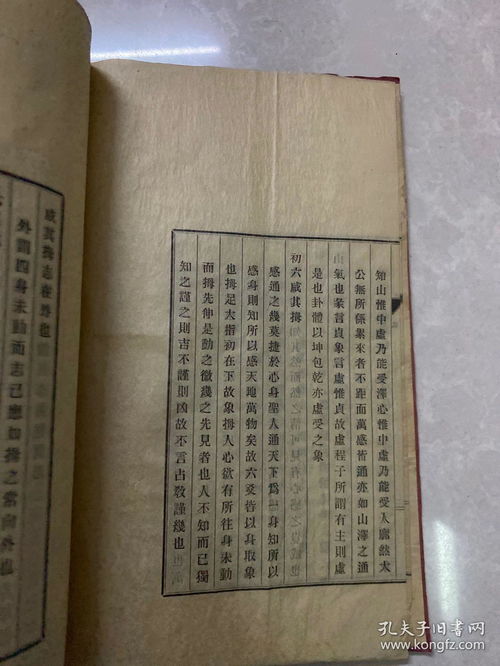 山惟中虛乃能受澤心惟中虛乃能受人廓然大
公無所係累來者不距而萬感皆通亦如山澤之通
氣也彖言貞象言虛惟貞故虛程子所謂有主則虛
是也卦體以坤包乾亦虛受之象
初六咸其拇
感通之幾莫捷於心身聖人通天下爲一身知所以
感身則知所以感天地萬物矣故六爻皆以身取象
也拇足大指初在下故象拇人心欲有所往身未動
而拇先伸是動之微幾之先見者也人不知而已獨
知之謹之則吉不謹則凶故不言占教謹幾也
咸其拇志在外也
外謂四身未動而志已應如拇之常向外也
孔夫子旧书网
www.kongfz.com